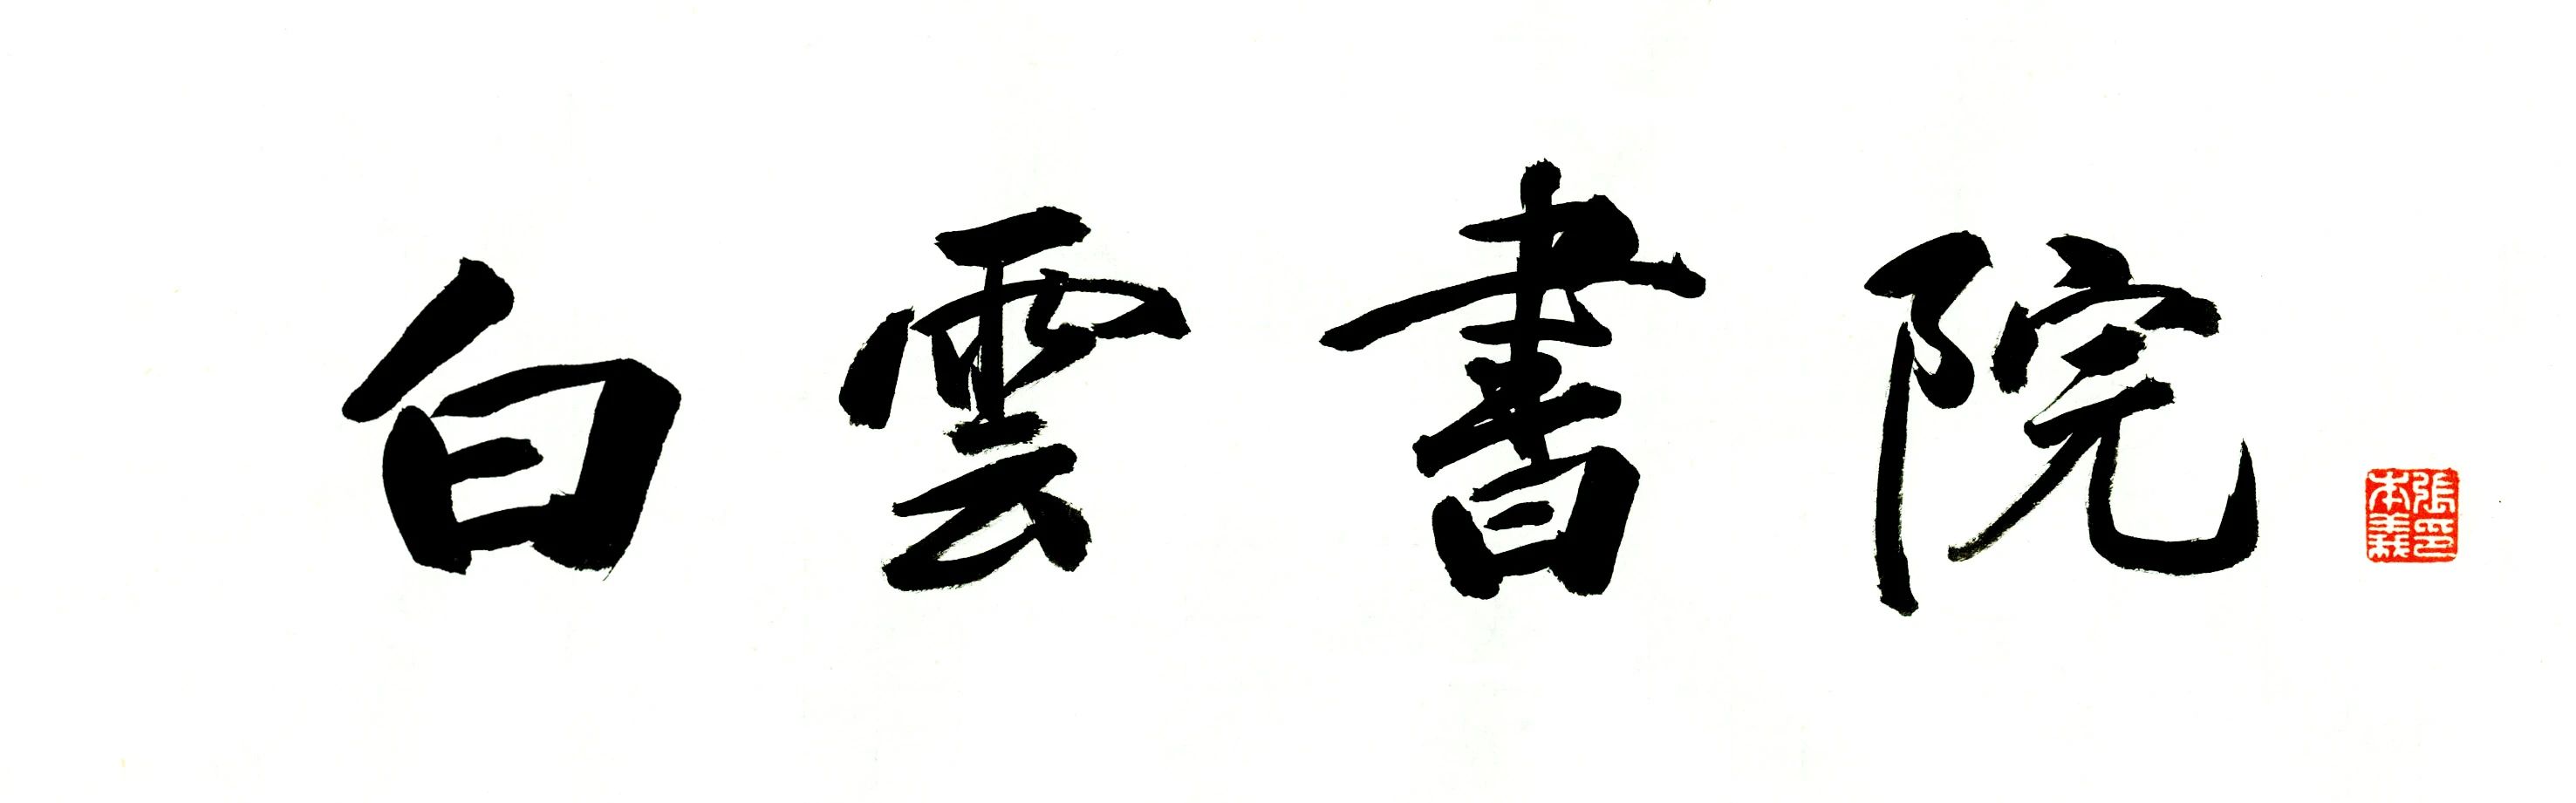 白雲書院
張本義印